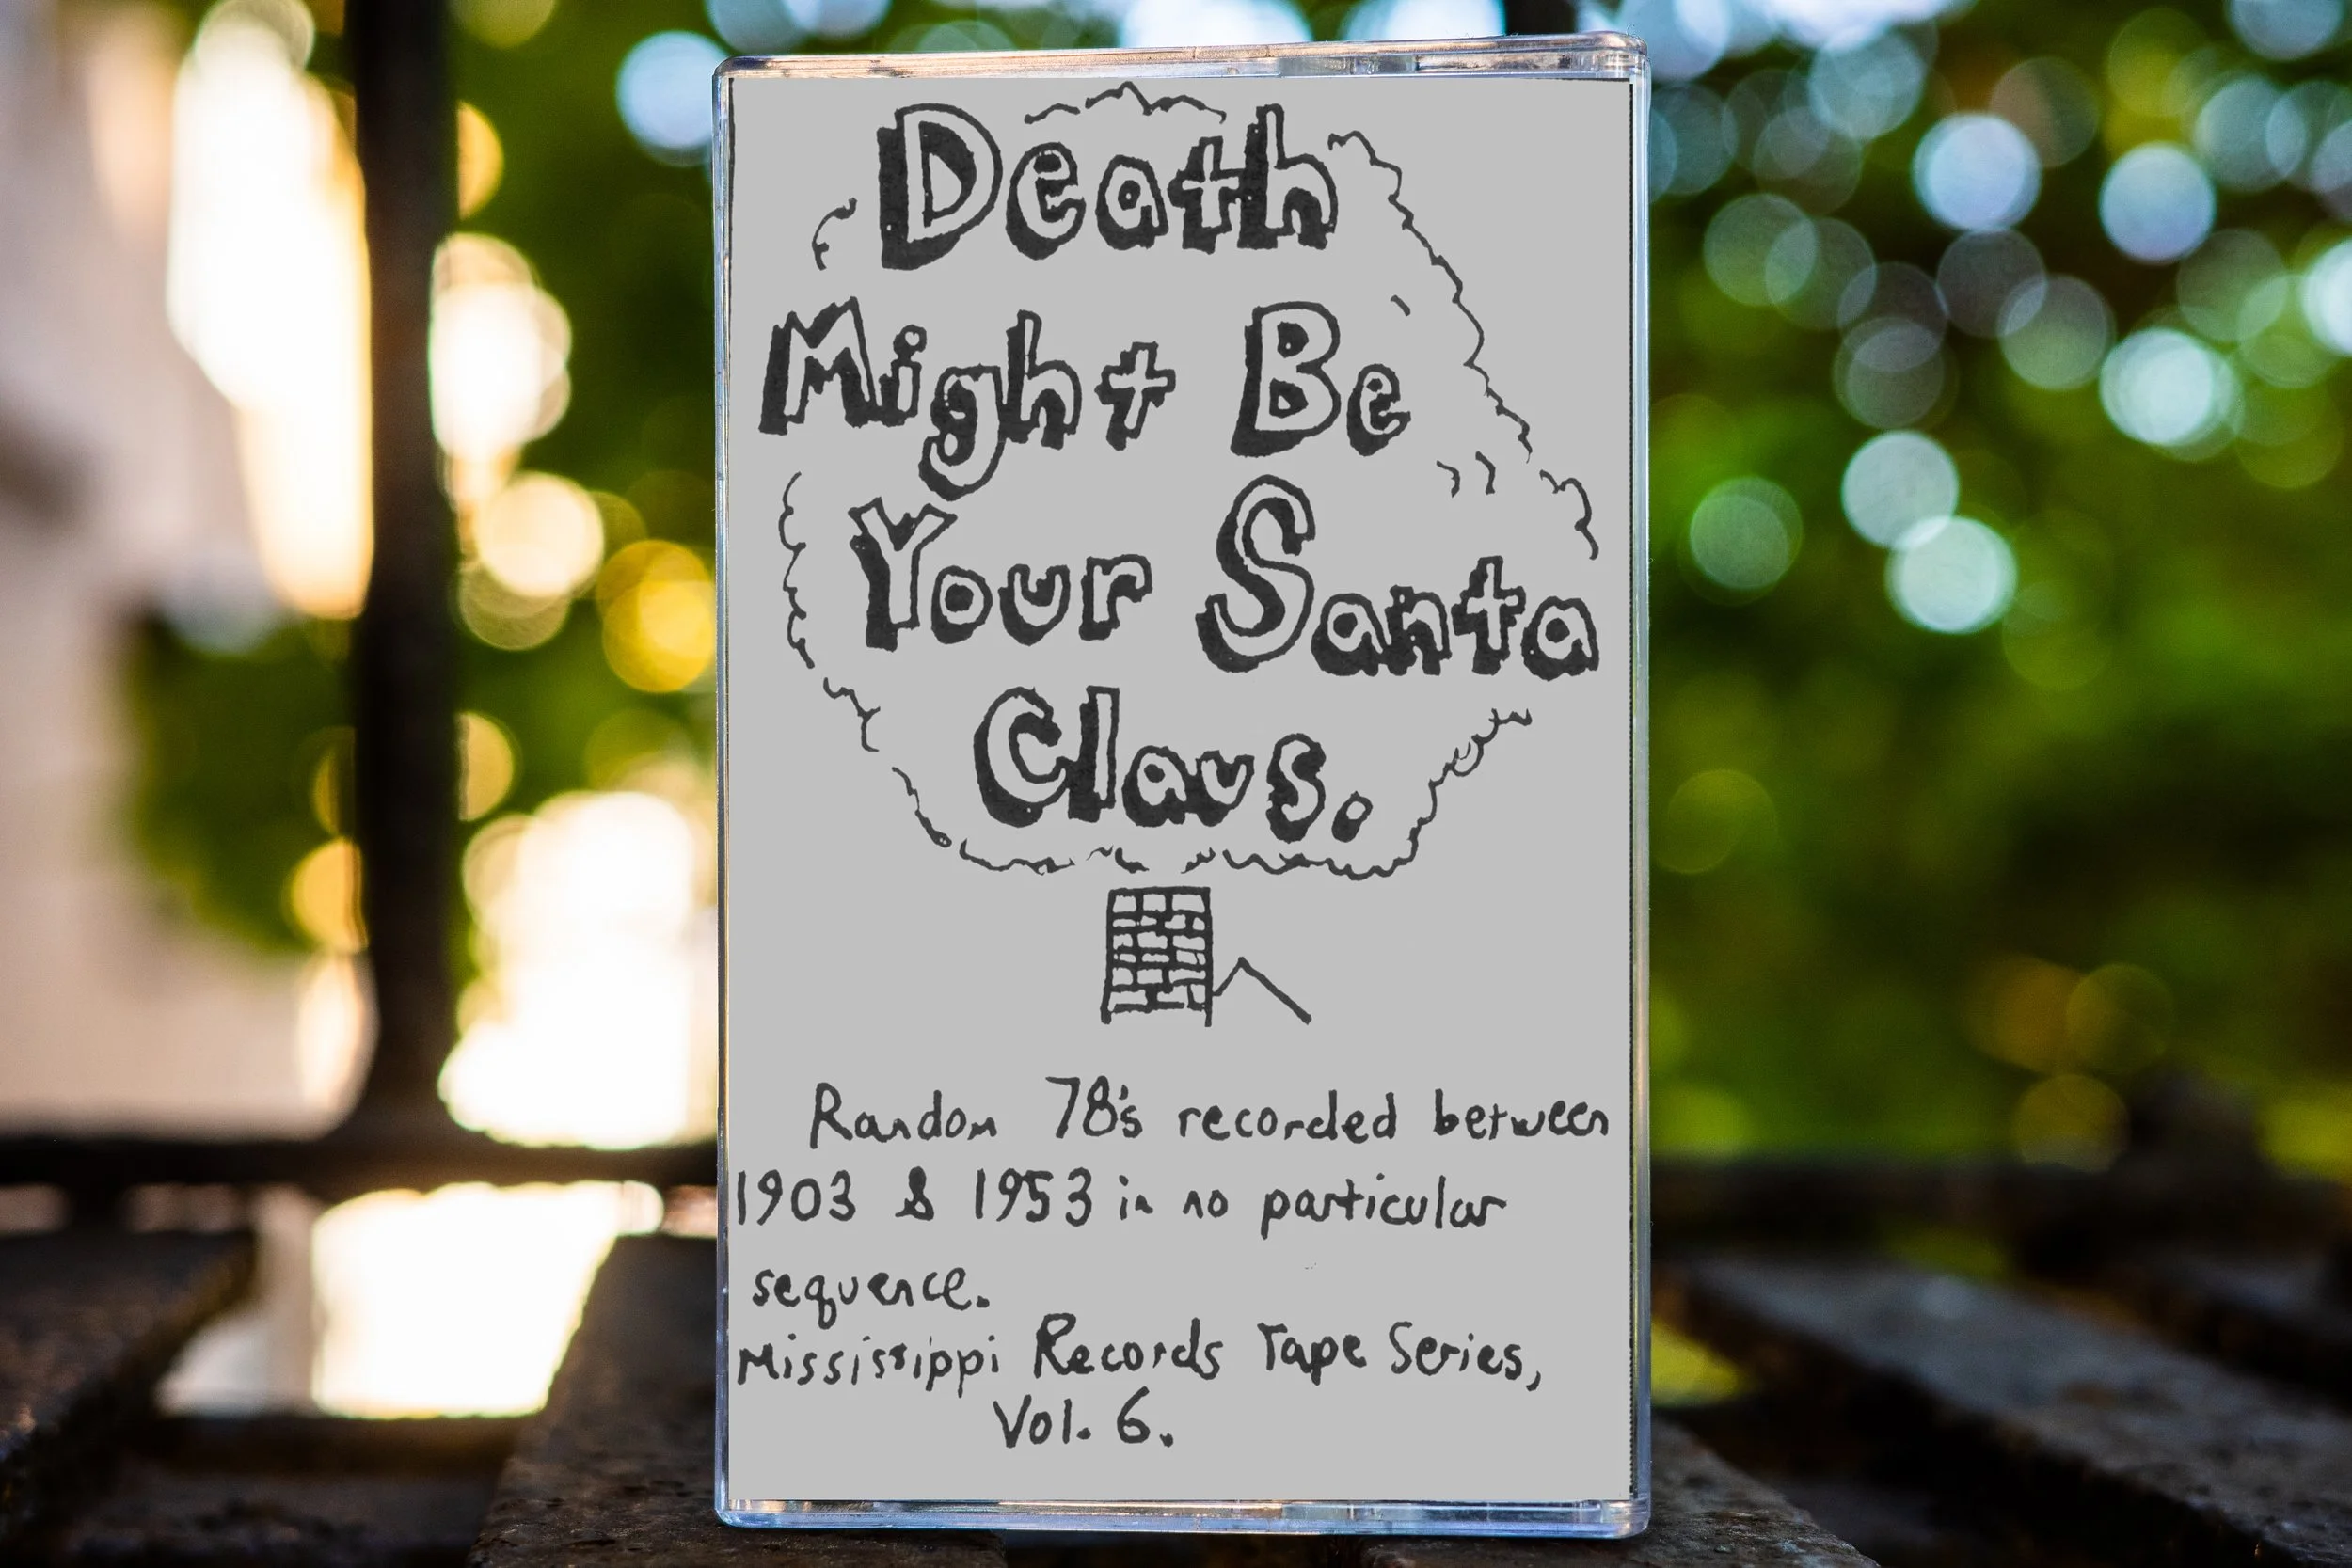 Death
Might Be
Your Santa
Claus.
Random 78's recorded between
1903 & 1953 in no particular
sequence.
Mississippi Records Tape Series,
Vol. 6.